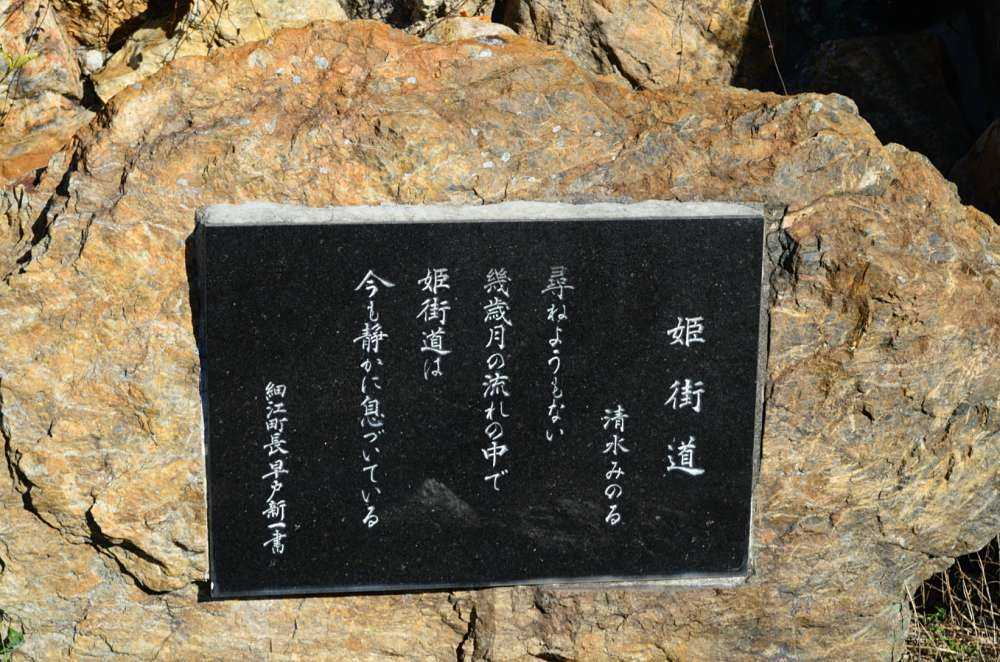 姫街道
清水みのる
尋ねようもない
幾歳月の流れの中で
姫街道は
今も静かに息づいている
細江町長早戸新一書